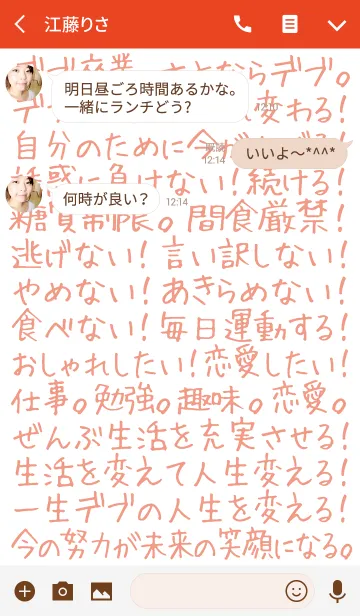 江藤りさ
デブ卒業。さよならデブ。
明日昼ごろ時間あるかな。
一緒にランチどう?
12:10
変わる!
自分のために今
既読
12:14
いいよ～*^^*
に負けない!続ける!
何時が良い?
12:14
糖質制限。間食厳禁!
逃げない!言い訳しない!
やめない!あきらめない!
食べない!毎日運動する!
おしゃれしたい!恋愛したい!
仕事。勉強。趣味。恋愛。
ぜんぶ生活を充実させる!
生活を変えて人生変える!
一生デブの人生を変える!
今の努力が未来の笑顔になる。